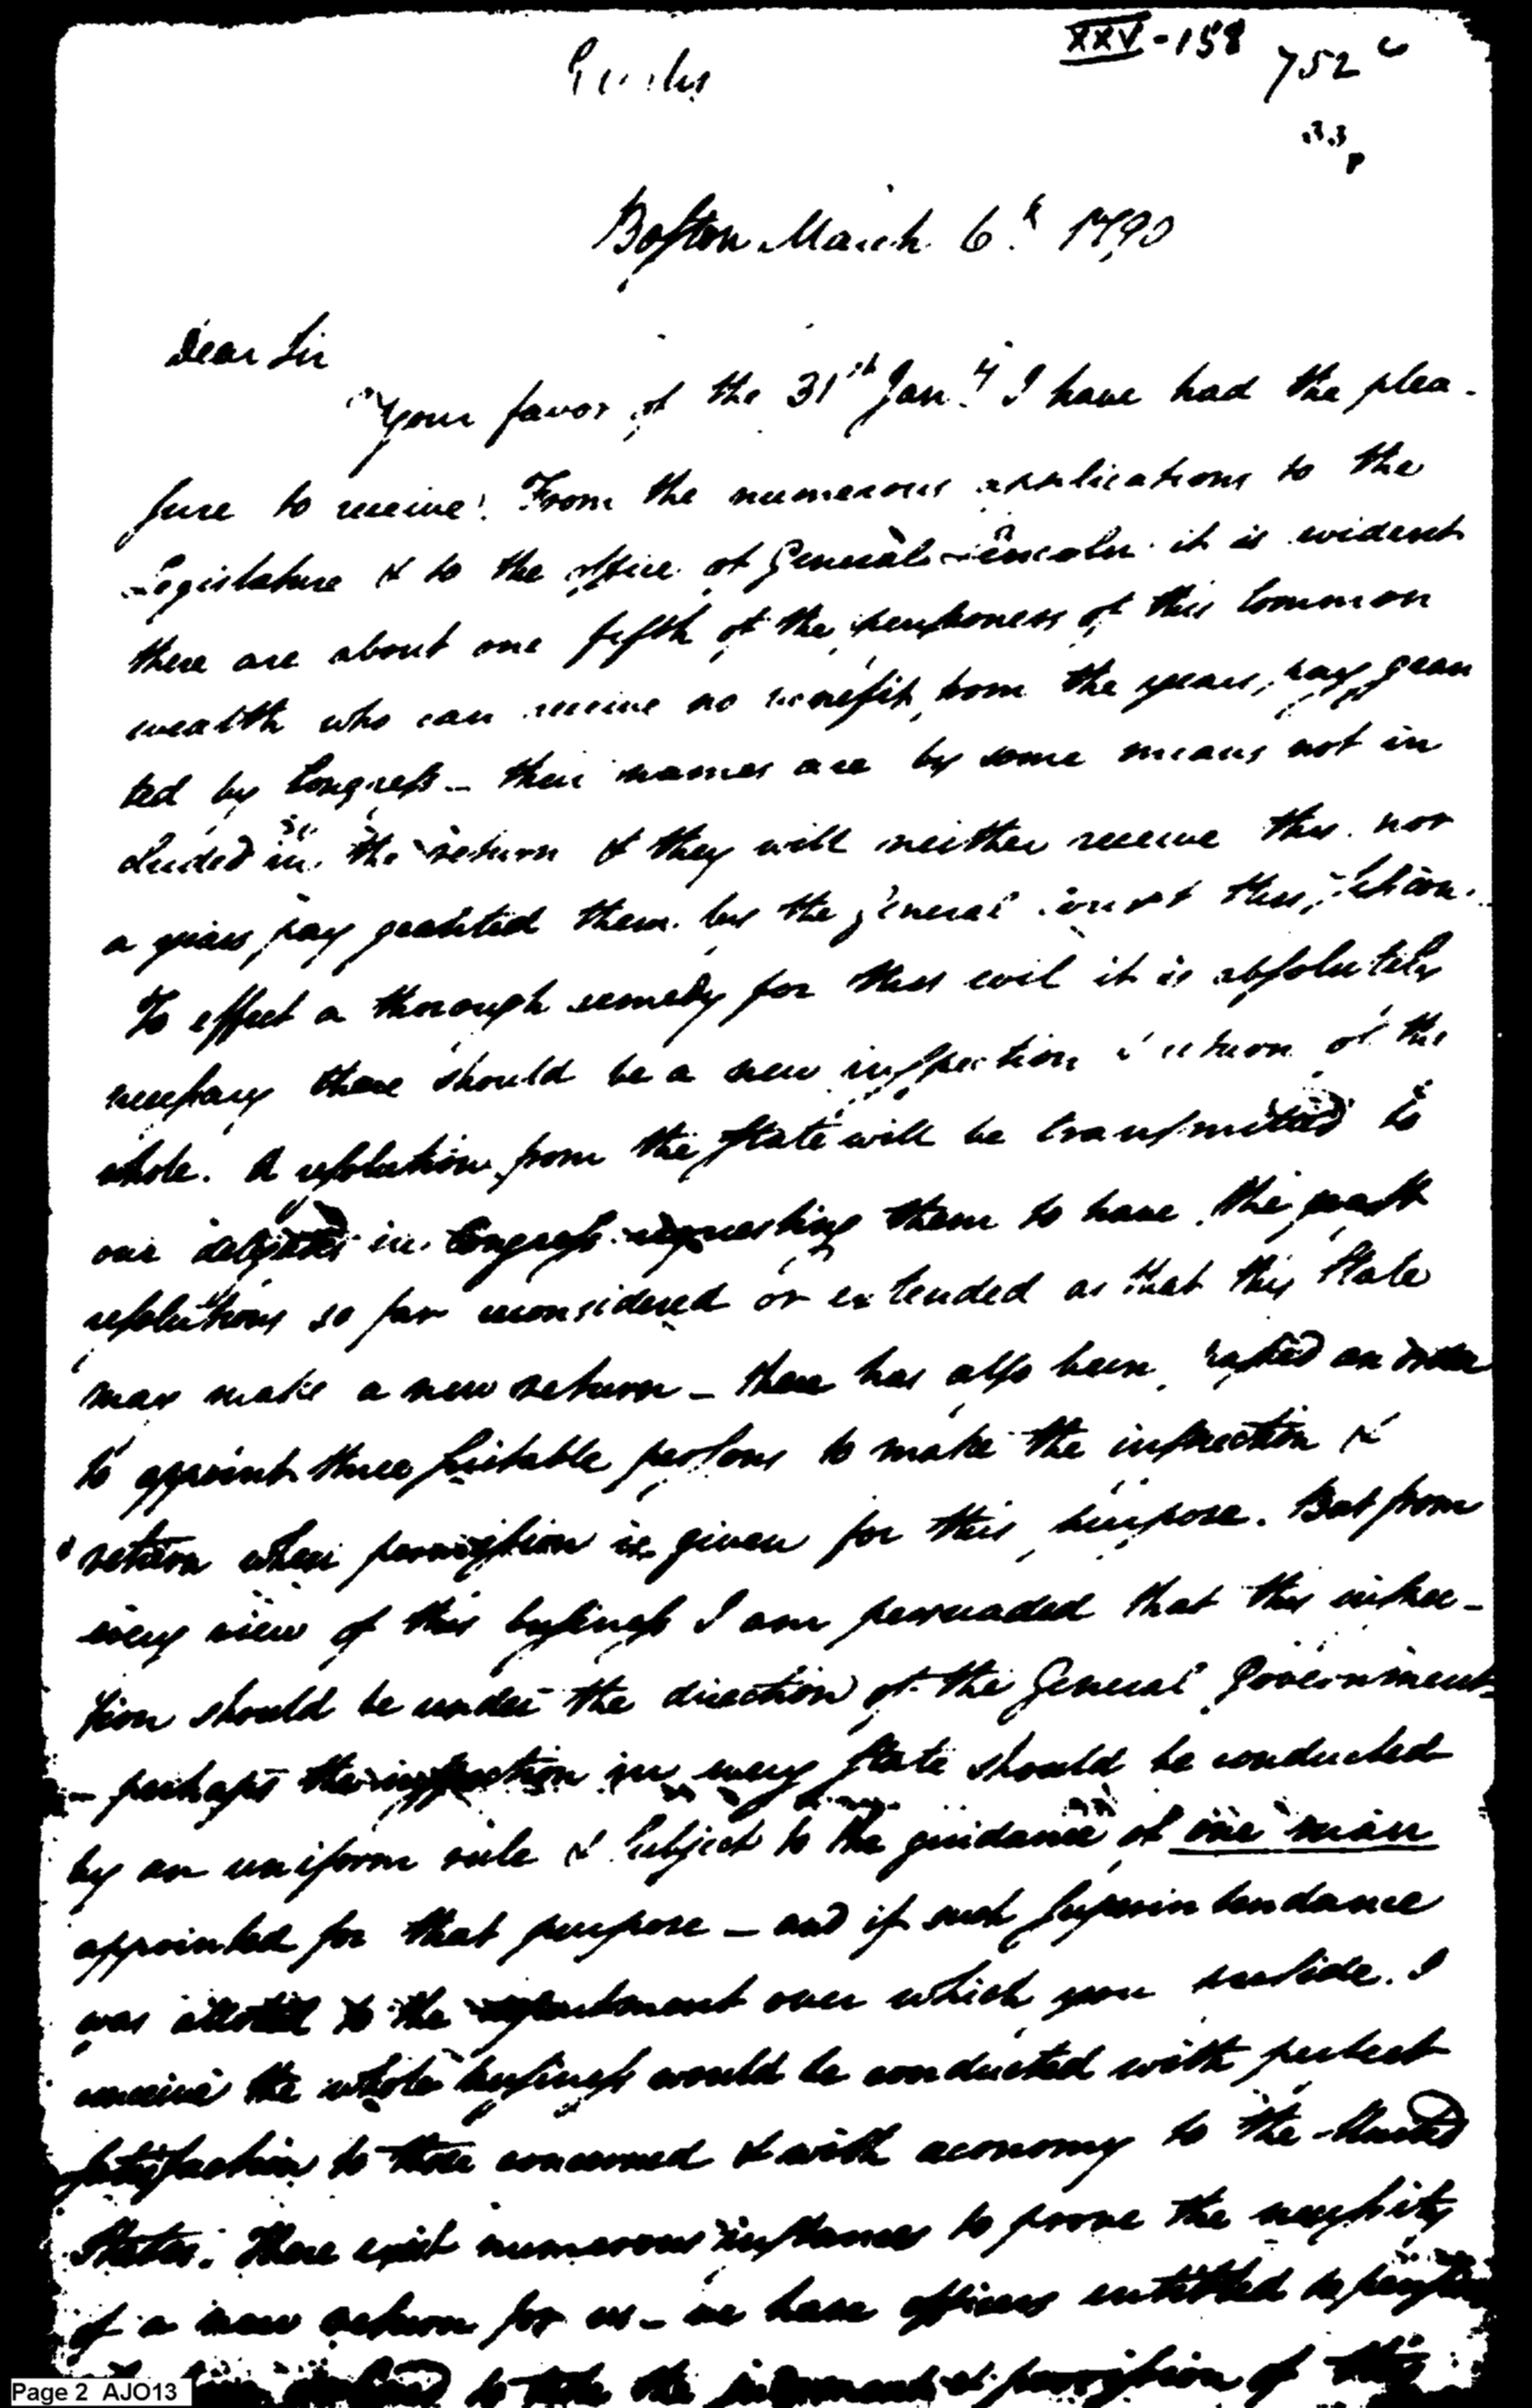 XXV-158
752
33
Boston March 6th 1790
Dear Sir
Your favor of the 31st Jany I have had the plea-
sure to receive. From the numerous applications to the
Legislature & to the office of General Lincoln it is evident
there are about one fifth of the pensioners of this Common
wealth who can receive no benefit from the years pay gran
ted by Congress – their names are by some means not in
cluded in the return & they will neither receive this nor
a years pay granted them by the General Court this
To effect a thorough remedy for this evil it is absolutely
necessary there should be a new inspection & return of the
whole. A resolution from the State will be transmitted to
our delegates in Congress requesting them to have the past
resolutions so far reconsidered or extended as that this State
may make a new return – there has also been passed an order
to appoint three suitable persons to make the inspection &
return when permission is given for this purpose. But from
every view of this business I am persuaded that this inspec-
tion should be under the direction of the General Government
– perhaps the inspection in every State should be conducted
by an uniform rule & subject to the guidance of one man
appointed for that purpose – and if such superintendance
was allotted to the department over which you preside. I
conceive the whole business would be conducted with perfect
satisfaction to those concerned & with economy to the United
States. There exist numerous instances to prove the necessity
of a new return for us – we have officers entitled to
to the of
Page 2 AJO13